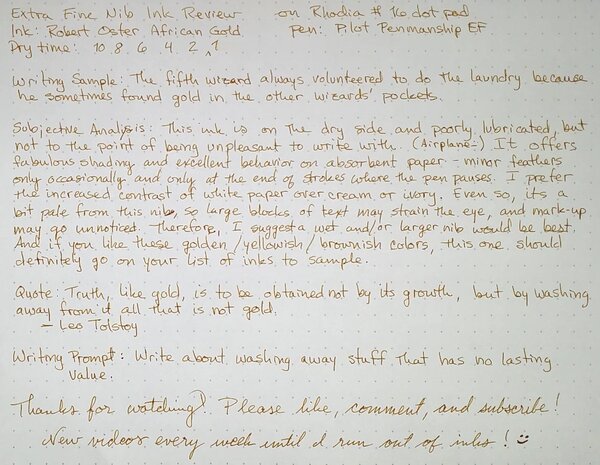 Extra Fine Nib Ink Review on Rhodia #16 dot pad
Ink: Robert Oster African Gold Pen: Pilot Penmanship EF
Dry time: 10 8 6 4 2 1
Writing Sample: The fifth wizard always volunteered to do the laundry because
he sometimes found gold in the other wizards' pockets.
Subjective Analysis: This ink is on the dry side and poorly lubricated, but
not to the point of being unpleasant to write with. (Airplane÷) It offers
fabulous shading and excellent behavior on absorbent paper - minor feathers
only occasionally and only at the end of strokes where the pen pauses. I prefer
the increased contrast of white paper over cream or ivory. Even so, it's a
bit pale from this nib, so large blocks of text may strain the eye, and mark-up
may go unnoticed. Therefore, I suggest a wet and/or larger nib would be best.
And if you like these golden/yellowish/brownish colors, this one should
definitely go on your list of inks to sample.
Quote: Truth, like gold, is to be obtained not by its growth, but by washing
away from it all that is not gold.
- Leo Tolstoy
Writing Prompt: Write about washing away stuff that has no lasting
value.
Thanks for watching! Please like, comment, and subscribe!
New videos every week until I run out of inks! :)